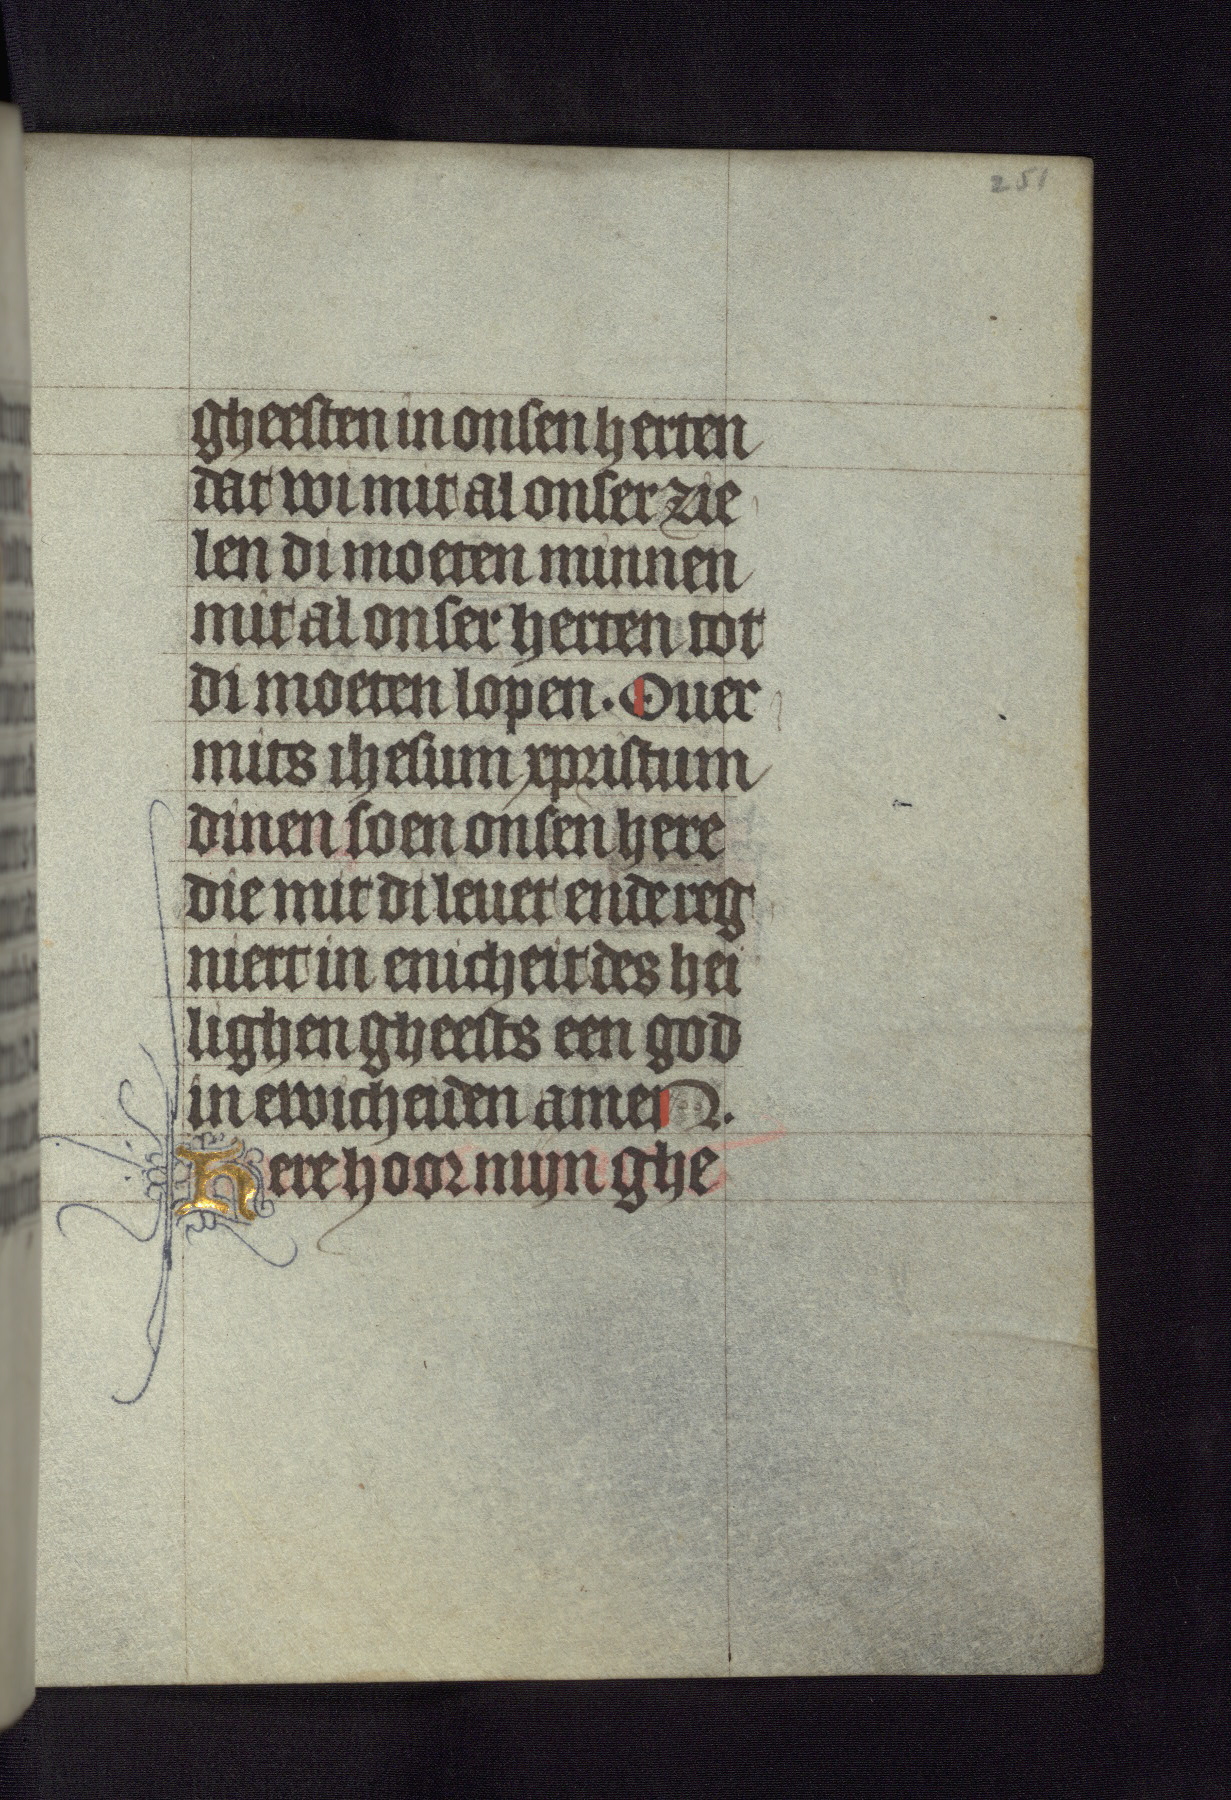 251
gheesten in onsen herten
dat wi mit al onser zie
len di moeten minnen
mit al onser herten tot
di moeten lopen. Ouer
mits ihesum xpristum
dinen soen onsen here
die mit di leuet ende reg
niert in enicheit des hei
lighen gheests een god
in ewicheiden amen.
Here hoor mijn ghe